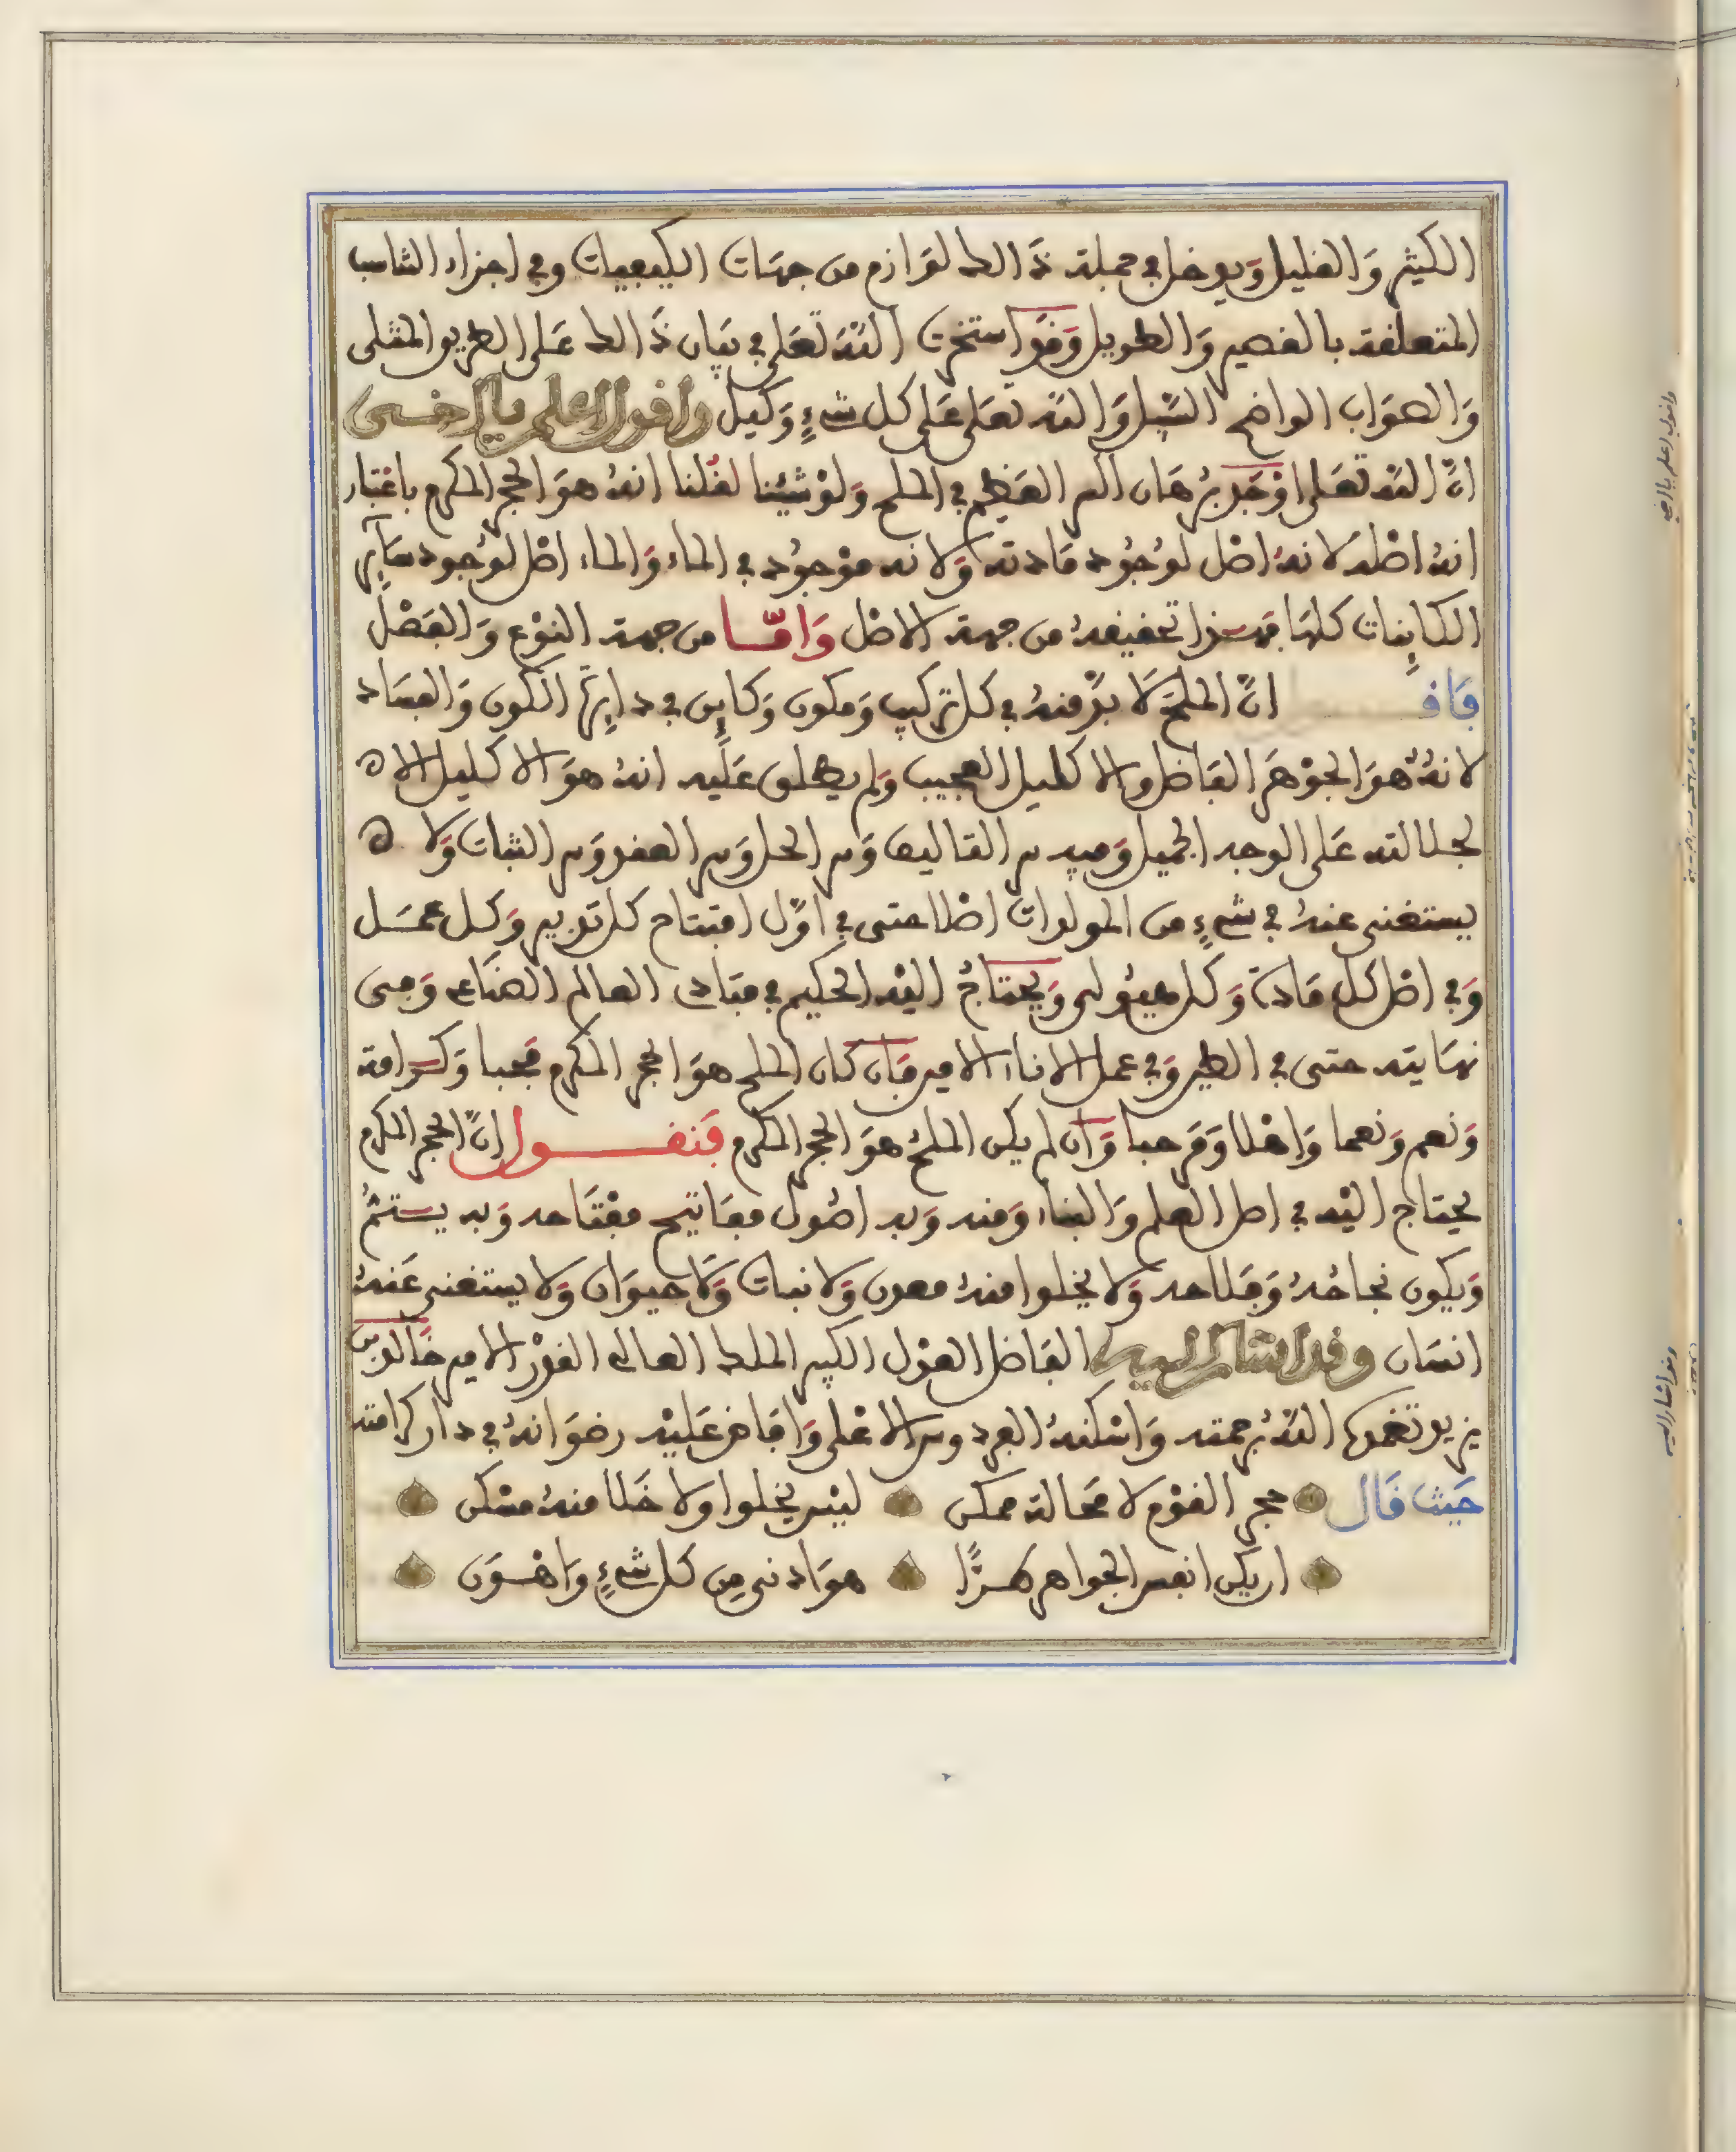 الكثير والقليل ويدخل في جملة ذالك لوازم من جهات الكيفيات وفي اجزاء التناسب
المتعلقة بالقصير والطويل وقد استخرت الله تعلى في بيان ذالك على الطريق المثلى
والصواب الواضح السبيل والله تعلى على كل شيء وكيل واقول اعلم يا اخي
ان الله تعلى اوجد برهان السر العظيم في الملح ولو شئنا لقلنا انه هو الحجر المكرم باعتبار
انه اصله لانه اصل لوجود مادته ولانه موجود في الماء والماء اصل لوجود سآير
الكاينات كلها فهذا تحقيقه من جهة الاصل واما من جهة النوع والفصل
فاقـ ان الملح لا بد منه في كل تركيب ومكون وكاين في دايرة الكون والفساد
لانه هو الجوهر الفاضل والاكليل العجيب ولم يطلق عليه انه هو الاكليل الا ه
لجلالته على الوجه الجميل وفيه سر التاليف وسر الحل وسر العقد وسر الثبات ولا ه
يستغنى عنه في شيء من المولدات اصلا حتى في اول افتتاح كل تدبير وكل عمل
وفي اصل كل مادة وكل هيولى ويحتاج اليه الحكيم في مبادى العالم الصناعي وفى
نهايته حتى في الطير وفي عمل الانا الامير فان كان الملح هو الحجر المكرم فحبا وكرامة
ونعم ونعما واهلا ومرحبا وان لم يكن الملح هو الحجر المكرم فنقول ان الحجر المكرم
يحتاج اليه في اصل العلم والبناء ومنه وبه اصول مفاتيح مفتاحه وبه يستتم
ويكون نجاحه وفلاحه ولا يخلوا منه معدن ولا نبات ولا حيوان ولا يستغنى عنه
انسان وقد اشار اليه الفاضل القول الكبير الملك العالى القدر الامير خالد بن
يزيد تغمده الله برحمته واسكنه الفردوس الاعلى وافاض عليه رضوانه في دار كرامته
حيث قال حجر القوم لا محالة ممكن ليس يخلوا ولا خلا منه مسكن
ان يكن انفس الجواهر طرا هو ادنى من كل شيء واهون